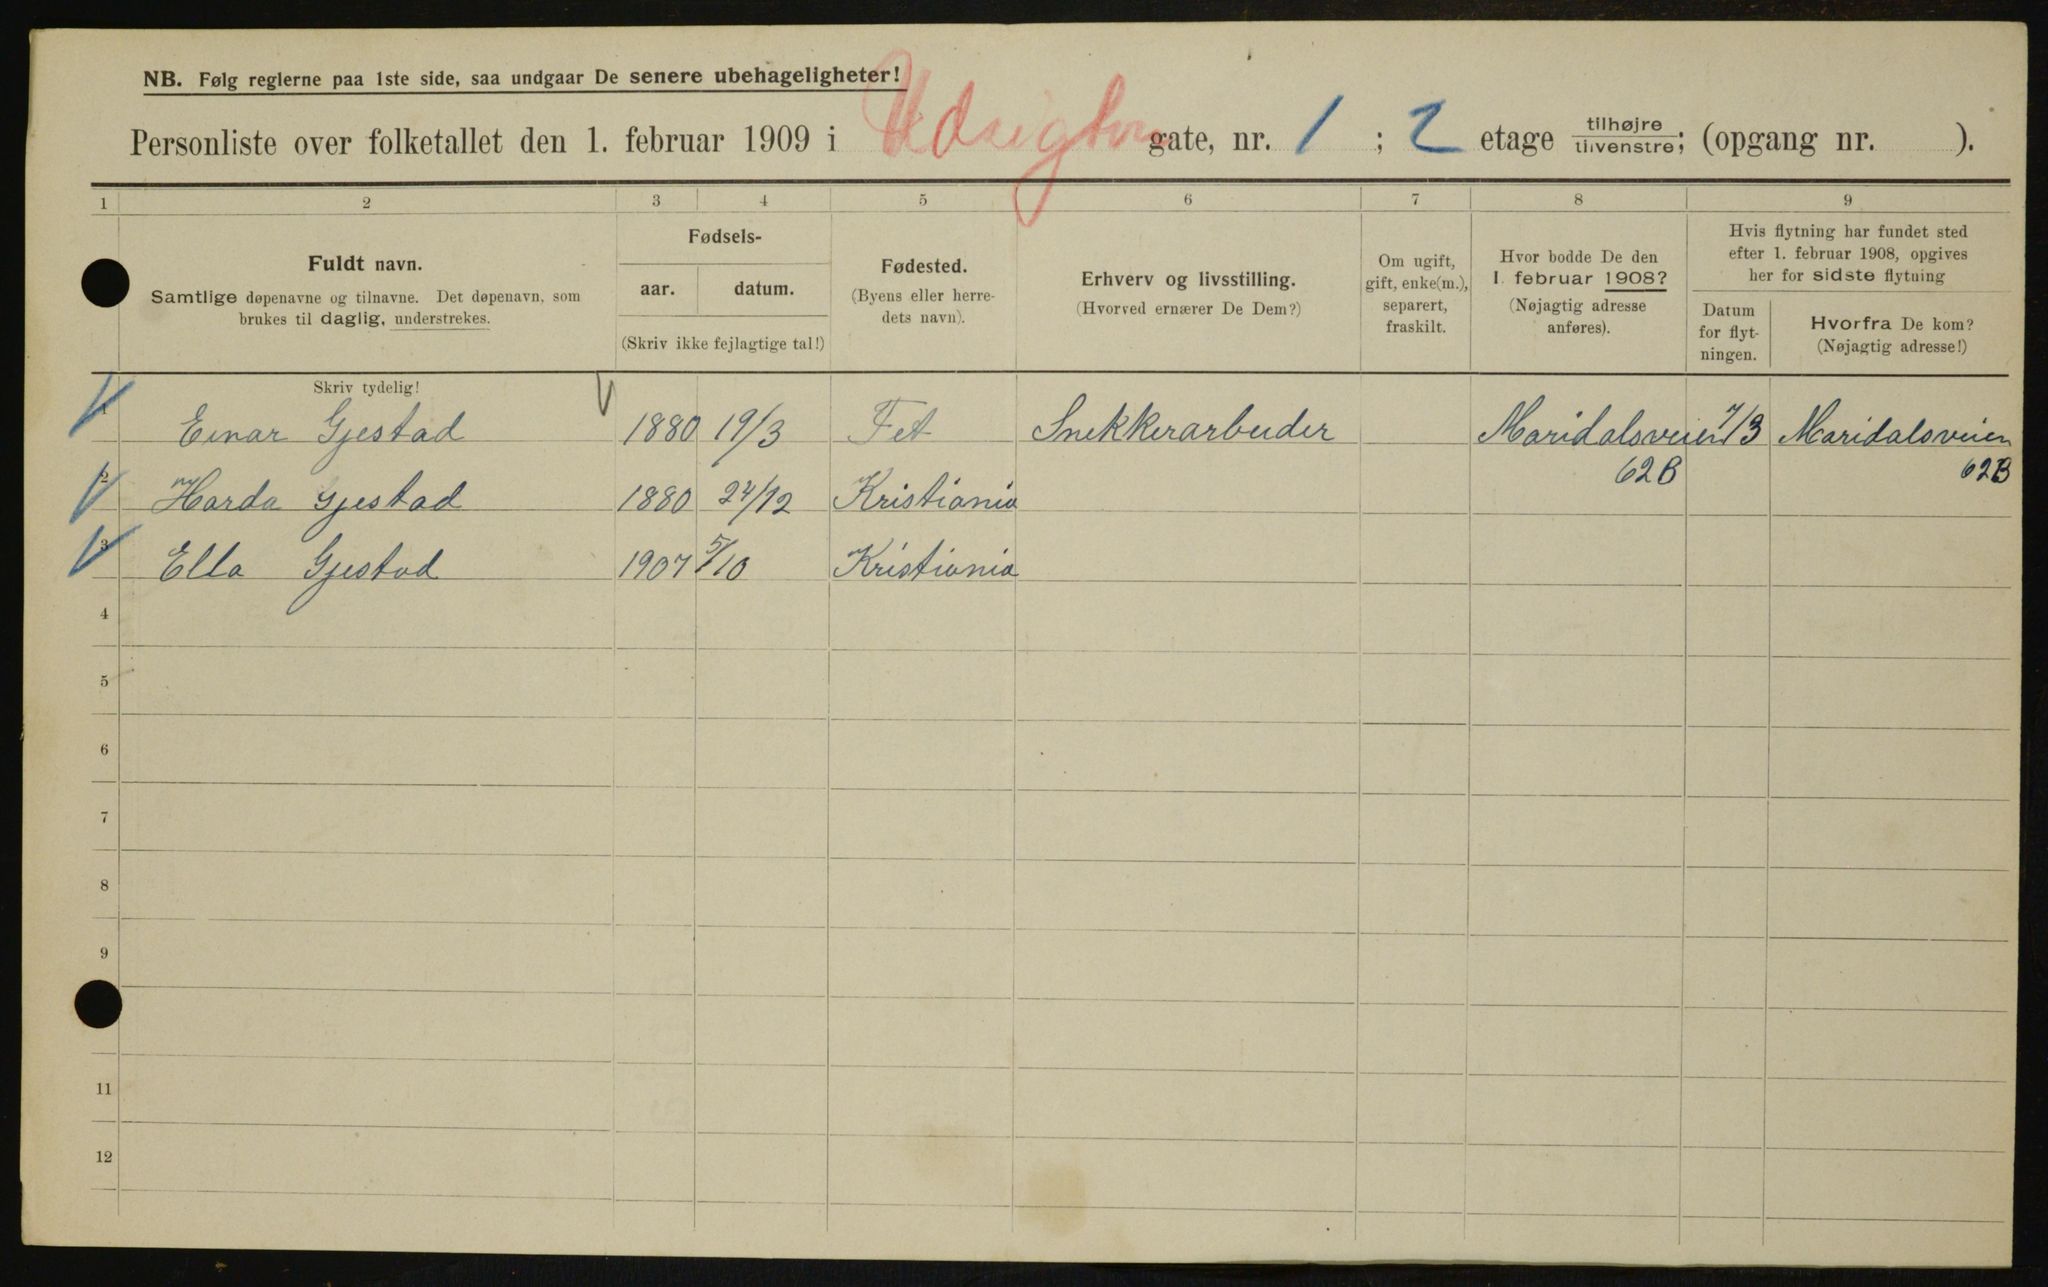 NB. Følg reglerne paa 1ste side, saa undgaar De senere ubehageligheter!
Personliste over folketallet den 1. februar 1909 i Udsigten gate, nr. 1 ; 2 etage tilhøjre tilvenstre; (opgang nr. ).
1 2 3 4 5 6 7 8 9
Fuldt navn.
Samtlige døpenavne og tilnavne. Det døpenavn, som
brukes til daglig, understrekes.
Fødsels-
aar. datum.
(Skriv ikke fejlagtige tal!)
Fødested.
(Byens eller herre-
dets navn).
Erhverv og livsstilling.
(Hvorved ernærer De Dem?)
Om ugift,
gift, enke(m.),
separert,
fraskilt.
Hvor bodde De den
1. februar 1908?
(Nøjagtig adresse
anføres).
Hvis flytning har fundet sted
efter 1. februar 1908, opgives
her for sidste flytning
Datum
for flyt-
ningen.
Hvorfra De kom?
(Nøjagtig adresse!)
Skriv tydelig!
1 Einar Gjestad 1880 19/3 Fet Snekkerarbeider Maridalsveien 7/3 Maridalsveien
62B 62B
2 Harda Gjestad 1880 24/12 Kristiania
3 Ella Gjestad 1907 5/10 Kristiania
4
5
6
7
8
9
11
12